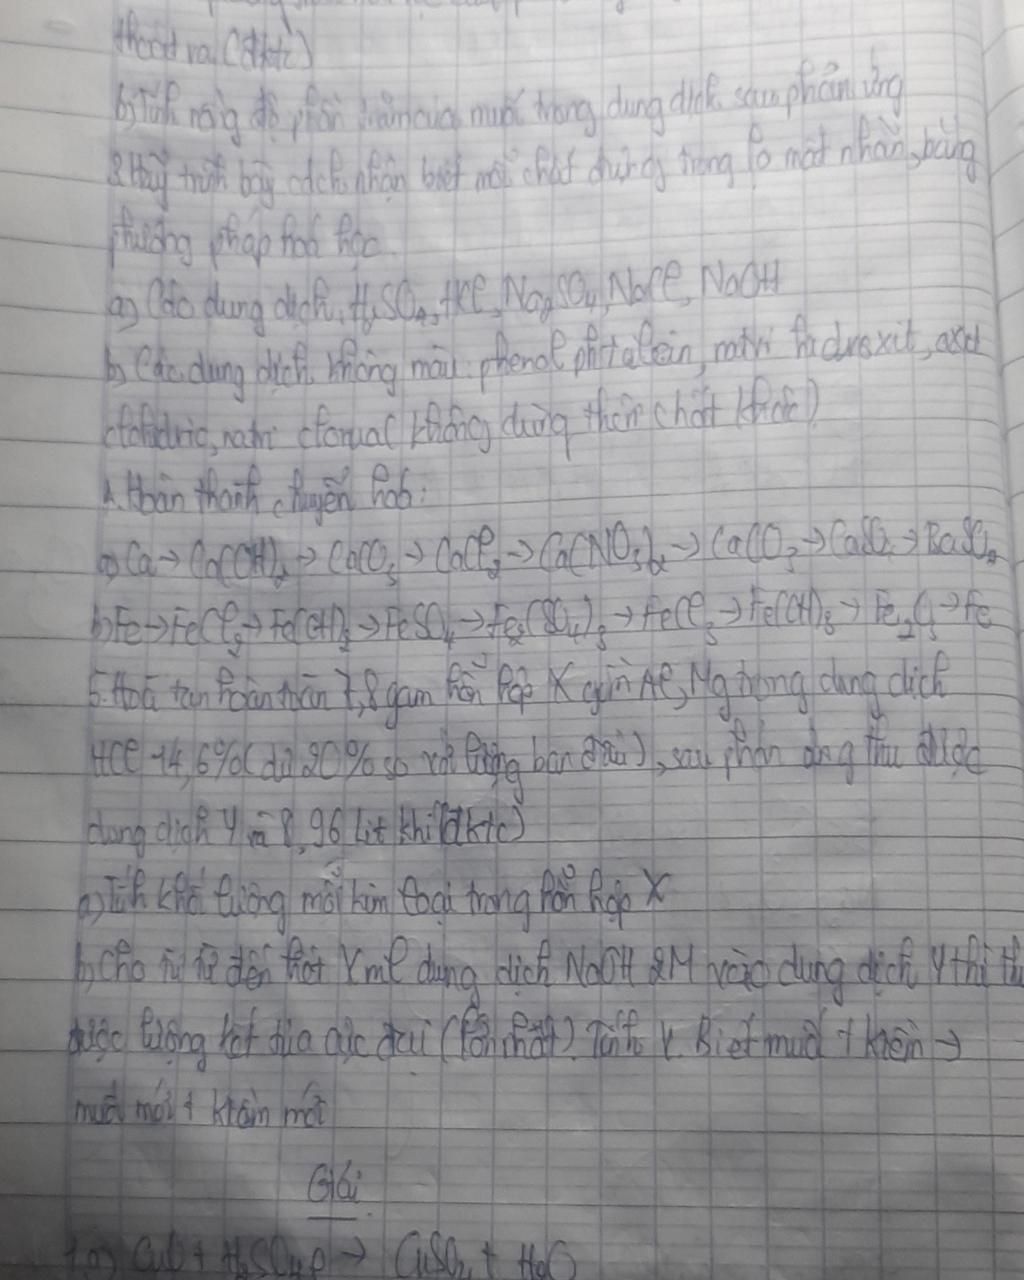 thoát ra (đktc)
b) Tính nồng độ phần trăm của muối trong dung dịch sau phản ứng
3. Hãy trình bày cách nhận biết mỗi chất đựng trong lọ mất nhãn, bằng
phương pháp hoá học.
a) Các dung dịch: H2SO4, HCl, Na2SO4, NaCl, NaOH
b) Các dung dịch không màu: phenolphtalein, natri hidroxit, axit
clohidric, natri clorua( không dùng thêm chất khác)
4. Hoàn thành chuyển hoá:
a) Ca → Ca(OH)2 → CaCO3 → CaCl2 → Ca(NO3)2 → CaCO3 → CaSO4 → BaSO4
b) Fe → FeCl2 → Fe(OH)2 → FeSO4 → Fe2(SO4)3 → FeCl3 → Fe(OH)3 → Fe2O3 → Fe
5. Hoà tan hoàn toàn 7,8 gam hỗn hợp X gồm Al, Mg trong dung dịch
HCl 14,6% (dư 20% so với lượng ban đầu), sau phản ứng thu được
dung dịch Y và 8,96 lít khí (đktc)
a) Tính khối lượng mỗi kim loại trong hỗn hợp X
b) Cho từ từ đến hết V ml dung dịch NaOH 2M vào dung dịch Y thì thu
được lượng kết tủa cực đại (lớn nhất). Tính V. Biết muối + kiềm →
muối mới + kiềm mới
Giải
1. a) CuO + H2SO4 → CuSO4 + H2O